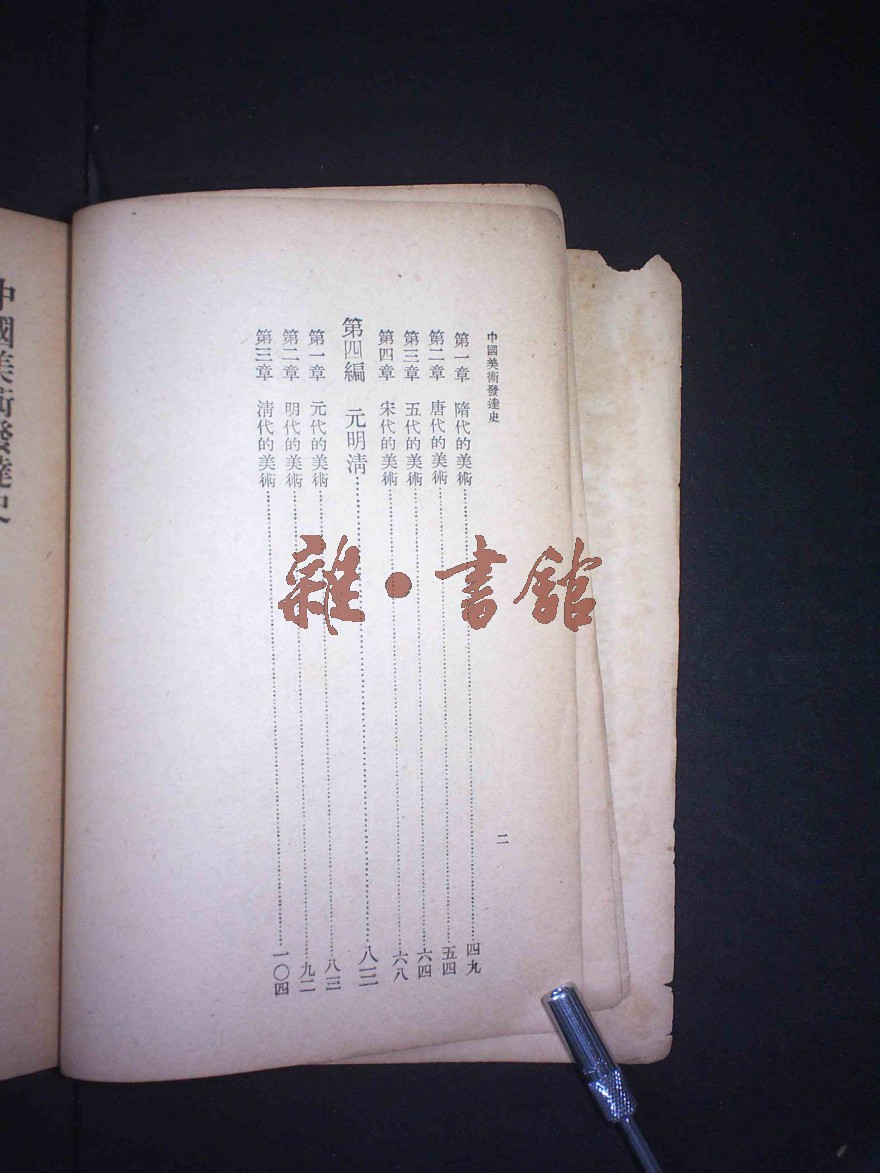 中國美術發達史
第一章 隋代的美術……四九
第二章 唐代的美術……五四
第三章 五代的美術……六四
第四章 宋代的美術……六八
第四編 元明清……八三
第一章 元代的美術……八三
第二章 明代的美術……九二
第三章 清代的美術……一〇四
二
中國美術發達史
雜·書館